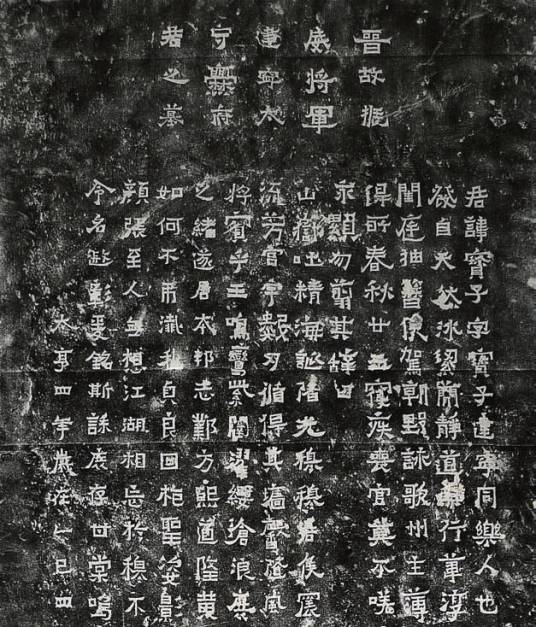 晉故振
威將軍
建寧太
守爨府
君之墓
君諱寶子字寶子建寧同樂人也
發自天然冰絜簡靜道兼行葦淳
閨庭抽簪俟駕朝野詠歌州主薄
得所春秋廿五寢疾喪官莫不嗟
永顯勿翦其辭曰
山嶽吐精海誕陟光穆穆君侯震
流芳宮宇數仞循得其墻馨隨風
將賓乎王鳴鸞紫闥濯纓滄浪庶
之緒遂居本邦志鄴方熙道隆黃
如何不弔殲我貞良回抱聖姿影
顏張至人無想江湖相忘於穆不
令名遐彰爰銘斯誄庶存甘棠嗚
太亨四年歲在乙巳四